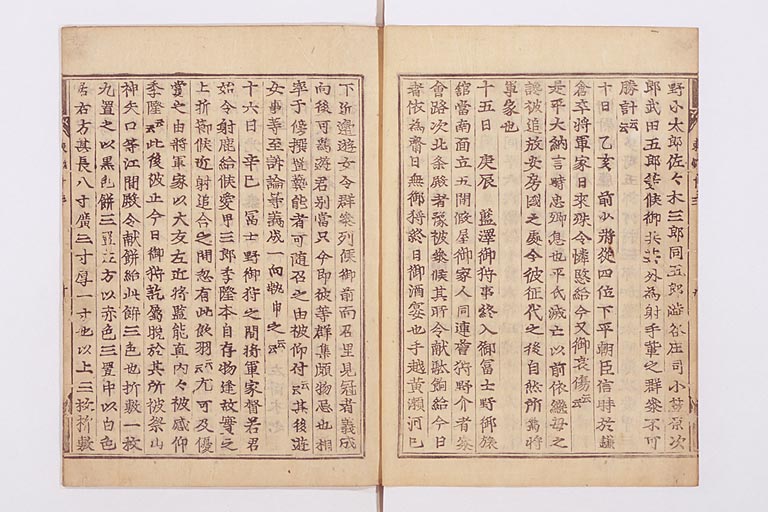 野小太郎佐々木三郎同五郎澁谷庄司小笠原次
郎武田五郎等候御共其外為射手輩之群參不可
勝計云云
十日 乙亥 前少將從四位下平朝臣信時於鎌
倉卒將軍家日来殊令憐愍給今又御哀傷云云
是平大納言時忠卿息也平氏滅亡以前依繼母之
讒被追放安房國之處令彼征代之後自然所爲將
軍家也
十五日 庚辰 藍澤御狩事終入御冨士野御旅
舘當南面立五間假屋御家人同連簷狩野介者參
會路次北条殿者豫被參候其所令献駄餉給今日
者依為齋日無御狩終日御酒宴也手越黄瀬河已
下近邊遊女令群參列候御前而召里見冠者義成
向後可爲遊君別當只今即彼等群集頗物忩也相
率于傍撰置藝能者可随召之由被仰付云云其後遊
女事等至訴論等義成一向執申之云云
十六日 辛巳 冨士野御狩之間將軍家督若君
始令射鹿給候愛甲三郎季隆本自存物逢故實之
上折節候近射追合之間忽有此飲羽云云尤可及優
賞之由將軍家以大友左近將監能直内々被感仰
季隆云云此後被止今日御狩訖屬晩於其所被祭山
神矢口等江間殿令献餅給此餅三色也折敷一枚
九置之以黒色餅三置左方以赤色三置中以白色
居右方其長八寸廣三寸厚一寸也以上三枚折敷